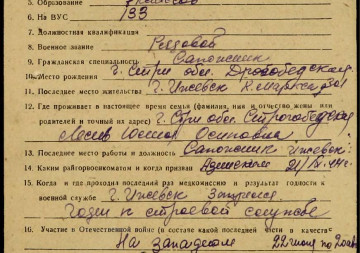 5. Образование 7 классов
6. На ВУС 133
7. Должностная квалификация
8. Военное звание Рядовой
9. Гражданская специальность Сапожник
10. Место рождения г. Стри обл. Дрогобедская
11. Последнее место жительства г. Ижевск К. Маркса
12. Где проживает в настоящее время семья (фамилия, имя и отчество жены или
родителей и точный их адрес) г. Стри обл.
Осиповна
13. Последнее место работы и должность Сапожник Ижевск
14. Каким райгорвоенкоматом и когда призван Азинским 21/
15. Когда и где проходил последний раз медкомиссию и результат годности к
военной службе г. Ижевск
Годен к строевой службе
16. Участие в Отечественной войне (в составе какой последней части в качестве
На западном 22 июня по